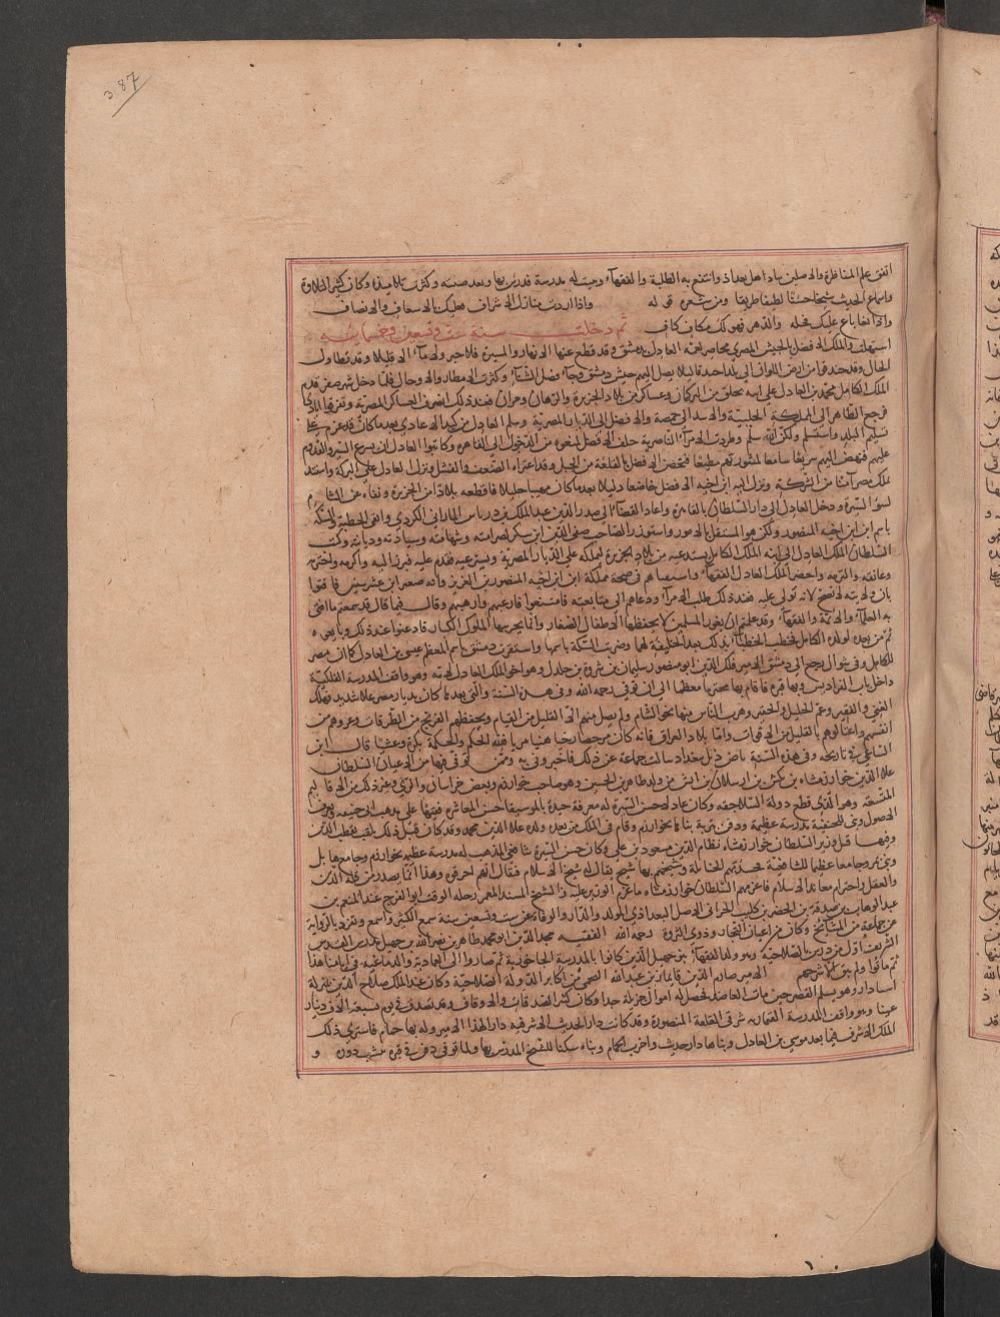 387
اتقن علم المناظرة والاصلين ببلاد اهل بغداد وانتفع به الطلبة والفقهاء وبنيت له مدرسة فدرس بها وبعد صيته وكثرت تلاميذه وكان كثير التلاوة
واسماع الحديث شيخا حسنا لطيفا ظريفا ومن شعره قوله واذا اردت منازل الاشراف فعليك بالاسعاف والانصاف
واذا بغا باغ عليك فخله والدهر فهو له مكاف كاف ثم دخلت سنة ست وتسعين وخمسمائة
استهلت والملك الافضل بالجيش المصري محاصر لعمه العادل بدمشق وقد قطع عنها الانهار والميرة فلا خبز ولا ماء الا قليلا وقد تطاول
الحال وقد خندقوا من ارض اللوان الى يلدا حندقا ليلا يصل اليهم جيش دمشق وجاء فصل الشتاء وكثرت الامطار والاوحال فلما دخل شهر صفر قدم
الملك الكامل محمد بن العادل على ابيه بخلق من التركمان وعساكر من بلاد الجزيرة والرهان وحران فعند ذلك انصرف العساكر المصرية وتفرقوا
فرجع الظاهر الى المملكة الحلبية والاسد الى حمصه والافضل الى الديار المصرية وسلم العادل من كيد الاعادي بعد ما كان قد عزم على
تسليم البلد واستسلم ولكن الله سلم وطردت الامراء الناصرية خلف الافضل ليمنعوه من الدخول الى القاهرة وكاتبوا العادل ان يسرع السير والقدوم
عليهم فنهض اليهم سريعا سامعا لمشورتهم مطيعا فتحصن الافضل بالقلعة من الجبل وقد اعتراه الضعف والفشل ونزل العادل على البركة واخذ
ملك مصر آمنا من الشركة ونزل اليه ابن اخيه الافضل خاضعا ذليلا بعد ما كان مهيبا جليلا فاقطعه بلادا من الجزيرة ونفاه عن الشام
لسوء السيرة ودخل العادل الى دار السلطان بالقاهرة واعاد القضاء الى صدر الدين عبد الملك بن درباس الماراني الكردي وابقى الخطبة والسكة
باسم ابن ابن اخيه المنصور ولكن هو المستقل بالامور واستوزر الصاحب صفي الدين ابن سكر لصرامته وشهامته وسيادته وديانته وكتب
السلطان الملك العادل الى ابنه الملك الكامل يستدعيه من بلاد الجزيرة ليملكه على الديار المصرية ويسترعيه فقدم عليه فبرز اليه واكرمه واحترمه
وعانقه والتزمه واحضر الملك العادل الفقهاء واستفتاهم في صحة مملكة ابن ابن اخيه المنصور بن العزيز وانه صغير ابن عشر سنين فافتوا
بان ولايته لا تصح لانه تولى عليه فعند ذلك طلب الامراء ودعاهم الى متابعته فامتنعوا فارغبهم وارهبهم وقال فيما قال قد سمعتم ما افتى
به العلماء والائمة والفقهاء وقد علمتم ان ثغور المسلمين لا يحفظها الاطفال الصغار وانما يحرسها الملوك الكبار فاذعنوا عند ذلك وبايعوه
ثم من بعده لولده الكامل فخطب الخطباء بذلك بعد الخليفة لهما وضربت السكة باسمهما واستقرت دمشق باسم المعظم عيسى بن العادل كما ان مصر
للكامل وفي شوال رجع الى دمشق الامير فلك الدين ابو منصور سليمان بن شروة بن جلدك وهو اخو الملك العادل لامه وهو واقف المدرسة الفلكية
داخل باب الفراديس وبها قبره فاقام بها محترما معظما الى ان توفي رحمه الله وفي هذه السنة والتي بعدها كان بديار مصر غلاء شديد فهلك
الغني والفقير وعم الجليل والحقير وهرب الناس منها نحو الشام ولم يصل منهم الا القليل من الفيام وتخطفهم الفرنج من الطرقات وغروهم من
انفسهم واغتالوهم بالقليل من الاقوات واما بلاد العراق فانه كان مرخصا قال ابن
الساعي في تاريخه وفي هذه السنة باض ديك ببغداد سالت جماعة عن ذلك فاخبروني به وممن توفي فيها من الاعيان السلطان
علاء الدين خوارزمشاه بن تكش بن ارسلان بن اتسز من ولد طاهر بن الحسين وهو صاحب خوارزم وبعض خراسان والري وغير ذلك من الاقاليم
المتسعة وهو الذي قطع دولة السلاجقة وكان عادلا حسن السيرة له معرفة جيدة بالموسيقا حسن المعاشرة فقيها على مذهب ابي حنيفة ويعرف
الاصول وبنى للحنفية مدرسة عظيمة ودفن بتربة بناها بخوارزم وقام في الملك من بعده ولده علاء الدين محمد وقد كان قبل ذلك يلقب بقطب الدين
وفيها قتل وزير السلطان خوارزمشاه نظام الدين مسعود بن علي وكان حسن السيرة شافعي المذهب له مدرسة عظيمة بخوارزم وجامع هائل
وبنى بمرو جامعا عظيما للشافعية فحسدتهم الحنابلة وشيخهم بها شيخ يقال له شيخ الاسلام فقال انهم احرقوه وهذا انما يصدر من قلة الدين
والعقل واحترام معاند الاسلام فاغرمهم السلطان خوارزمشاه ما غرم الوزير عليه والشيخ المسند المعمر رحلة الوقت ابو الفرج عبد المنعم بن
عبد الوهاب بن صدقة بن الخضر بن كليب الحراني الاصل البغدادي المولد والدار والوفاة عن ست وتسعين سنة سمع الكثير واسمع وتفرد بالرواية
عن جماعة من المشائخ وكان من اعيان التجار وذوي الثروة رحمه الله الفقيه مجد الدين ابو محمد طاهر بن نصر الله بن جهيل مدرس القدس
الشريف اول من درس بالصلاحية وهو والد الفقهاء بني جهبل الدين كانوا بالمدرسة الجاروخية ثم صاروا الى العمادية والدماغية في ايامنا هذا
ثم ماتوا ولم يبق الا شرحهم الامير صارم الدين قايماز بن عبد الله النجمي من اكابر الدولة الصلاحية وكان عند الملك صلاح الدين بمنزلة
استادار وهو يسلم القصر حين مات العاضد فحصل له اموال جزيلة جدا وكان كثير الصدقات والاوقاف وقد تصدق في يوم بسبعة الاف دينار
عينا وهو واقف المدرسة القيمازية شرقي القلعة المنصورة وقد كانت دار الحديث الاشرفية دارا لهذا الامير وله بها حمام فاشترى ذلك
الملك الاشرف فيما بعد موسى بن العادل وبناها دار حديث واخرب الحمام وبناه سكنا للشيخ المدرس بها ولما توفي دفن في قبره